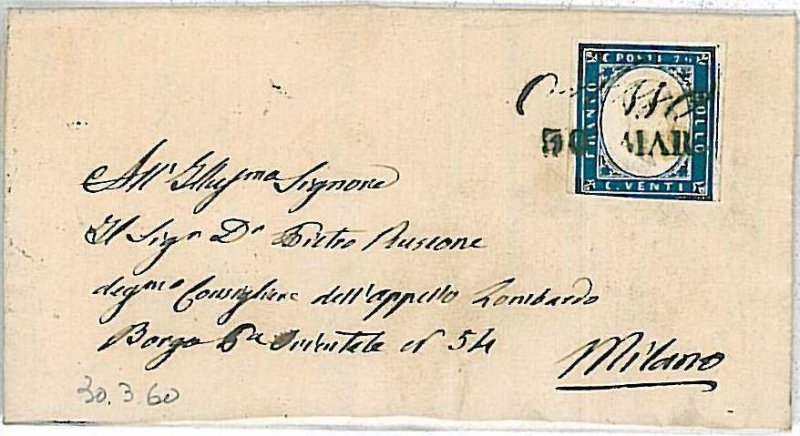 C. POSTE 20
FRANCO
BOLLO
C. VENTI
30 MAR
All' Illus.mo Signore
Il Sig.r D.r Pietro
degmo Consigliere dell'appello Lombardo
Borgo P.a Orientale no 54
Milano
30.3.60